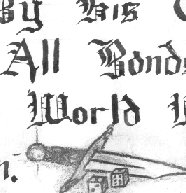 By His
All Bonds
World
n.